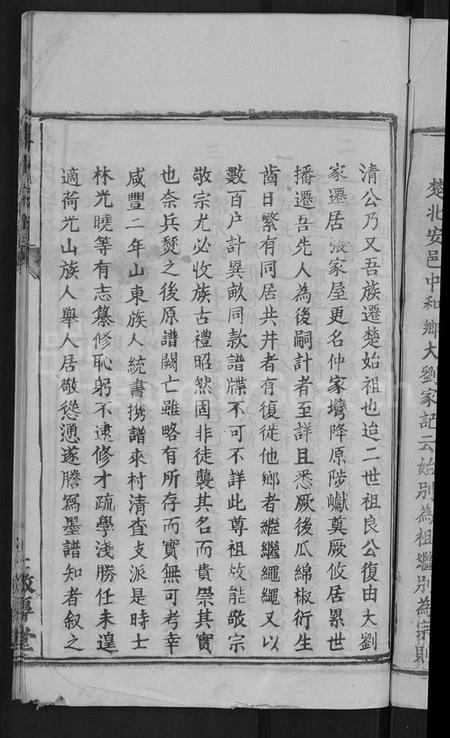 楚北安邑中和鄉大劉家記云始別為祖繼別為宗則
清公乃又吾族遷楚始祖也迨二世祖良公復由大劉
家遷居張家屋更名仲家塆降原陟巘奠厥攸居累世
播遷吾先人為後嗣計者至詳且悉厥後瓜綿椒衍生
齒日繁有同居共井者有復從他鄉者繼繼繩繩又以
數百户計異畝同款譜牒不可不詳此尊祖故能敬宗
敬宗尤必收族古禮昭然固非徒襲其名而貴崇其實
也奈兵燹之後原譜闕亡雖略有所存而實無可考幸
咸豐二年山東族人統書携譜來村清查支派是時士
林光曉等有志纂修恥躬不逮修才疏學淺勝任未遑
適荷光山族人舉人居敬慫慂遂謄為墨譜知者叙之
敦厚堂